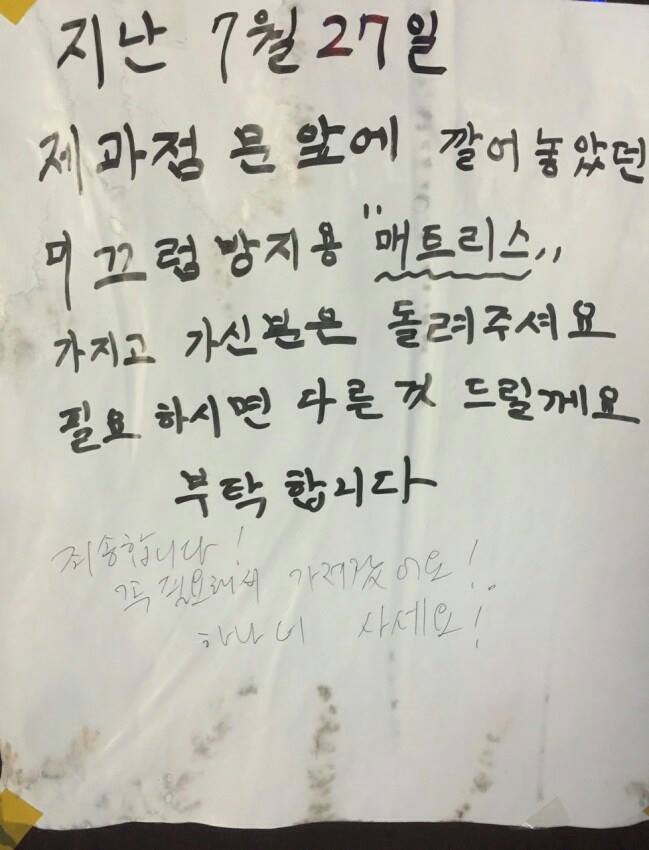 지난 7월 27일
제과점 문 앞에 깔어놓았던
미끄럼방지용 "매트리스„
가지고 가신분은 돌려주셔요
필요하시면 다른것 드릴께요
부탁합니다
죄송합니다!
꼭 필요해서 가져갔어요!
하나 더 사세요!